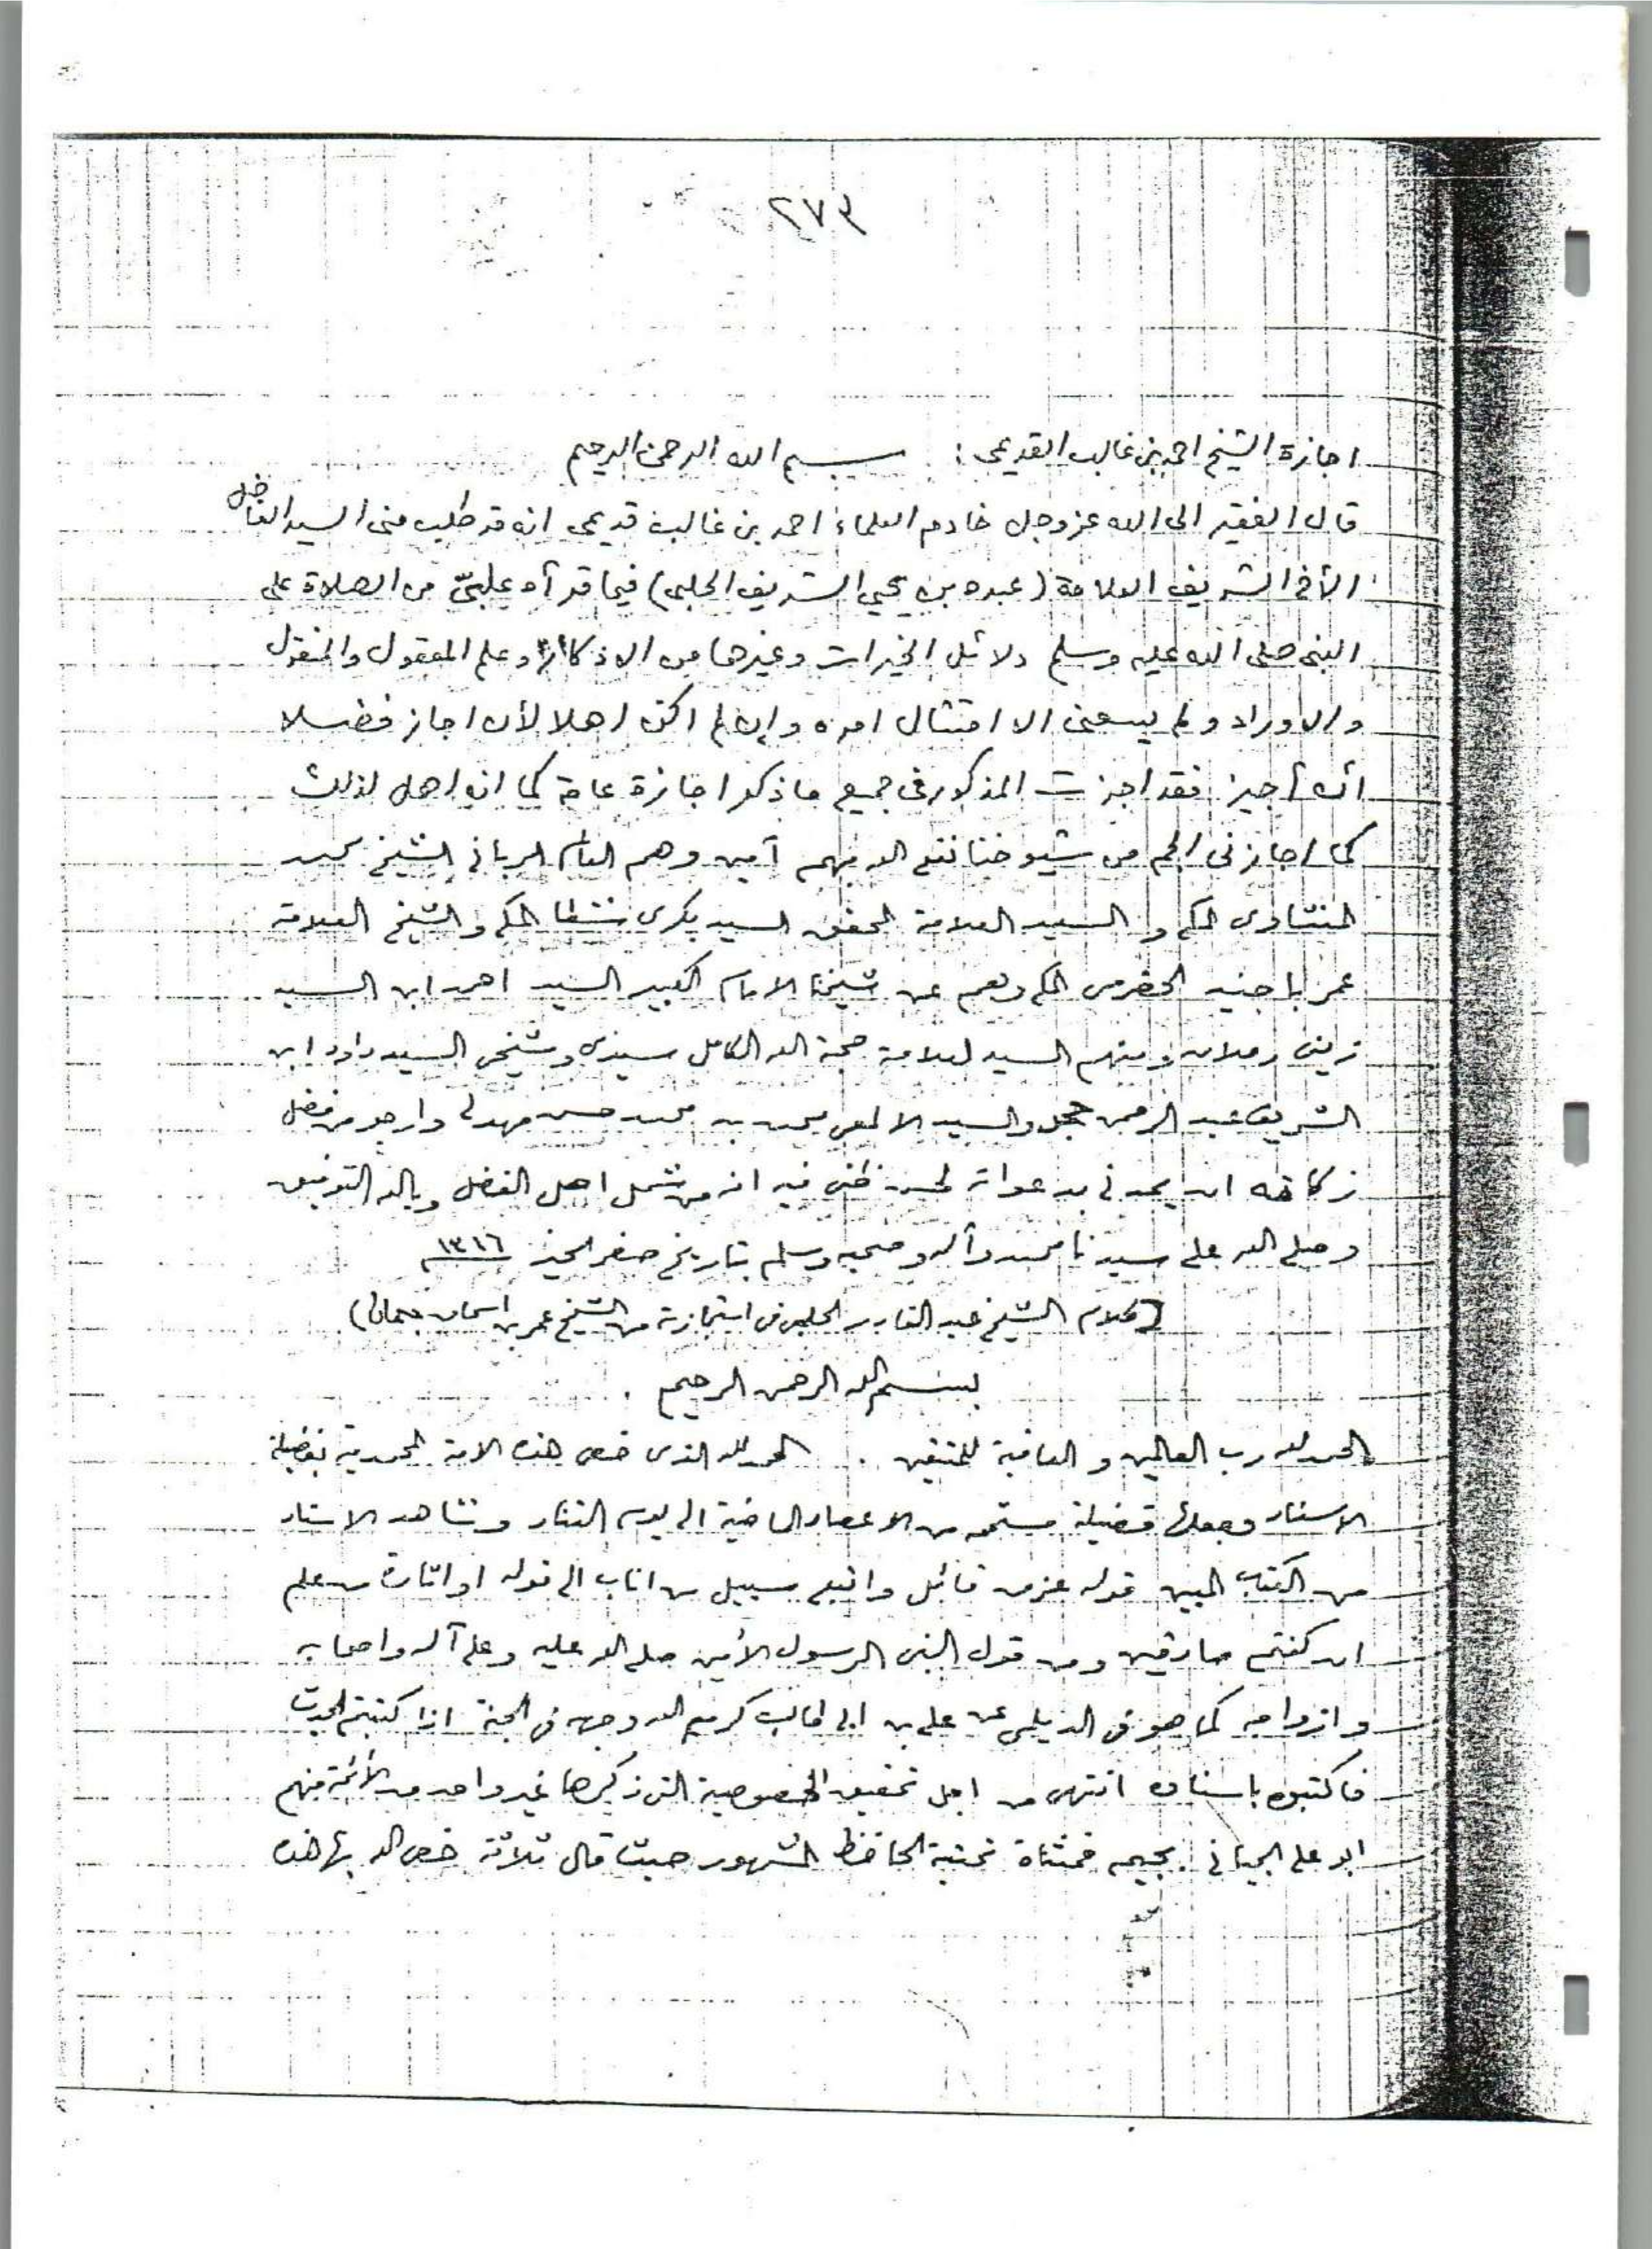 ٢٧٣
اجازة الشيخ احمد بن غالب القديمى : بسم الله الرحمن الرحيم
قال الفقير الى الله عز وجل خادم العلماء احمد بن غالب قديمى انه قد طلب منى السيد الفاضل
الأخ الشريف العلامة (عبده بن يحيي الشريف الحلبى) فيما قرأه عليّ من الصلاة على
النبى صلى الله عليه وسلم دلائل الخيرات وغيرها من الاذكار وعلم المعقول والمنقول
والاوراد ولم يسعنى الا امتثال امره وإن لم اكن اهلا لأن اجاز فضلا
أن أجيز فقد اجزت المذكور فى جميع ما ذكر اجازة عامة كما انه اهل لذلك
كما اجازنى الجم من شيوخنا نفع الله بهم آمين وهم العالم الربانى الشيخ محمد
المنشاوى المكى والسيد العلامة المحقق السيد بكرى شطا المكى والشيخ العلامة
عمر باجنيد الحضرمى المكى وهم عن شيخنا الامام الكبير السيد احمد ابن السيد
زينى دحلان ومنهم السيد العلامة حجة الله الكامل سيدى وشيخى السيد داود ابن
الشريف عبد الرحمن حجر والسيد الالمعى محمد بن محمد حسن مهدلى وارجو من فضل
ان يمدنى بدعواته لحسن ظنى فيه انه من شمل اهل الفضل وبالله التوفيق
وصلى الله على سيدنا محمد وآله وصحبه وسلم بتاريخ صفر الخير ١٣١٦
(كلام الشيخ عبد القادر الحلبى فى استجازته من الشيخ عمر بن اسحاق جمان)
بسم الله الرحمن الرحيم .
الحمد لله رب العالمين و العاقبة للمتقين . الحمد لله الذى خص هذه الامة المحمدية بفضيلة
الاسناد وجعلها فضيلة مستمرة من الاعصار الماضية الى يوم التناد وشاهد الاسناد
من الكتاب المبين قوله عز من قائل واتبع سبيل من اناب الى قوله او اثارة من علم
ان كنتم صادقين ومن قول النبى الرسول الأمين صلى الله عليه وعلى آله واصحابه
وازواجه كما هو فى الديلمى عن على بن ابى طالب كرم الله وجهه فى الجنة اذا كتبتم الحديث
فاكتبوه باسناده انتهى من اجل تحقيق الخصوصية التى ذكرها غير واحد من الأئمة منهم
ابو على الجيانى بجيم فمثناة تحتية الحافظ المشهور حيث قال ثلاثة خص الله بها هذه